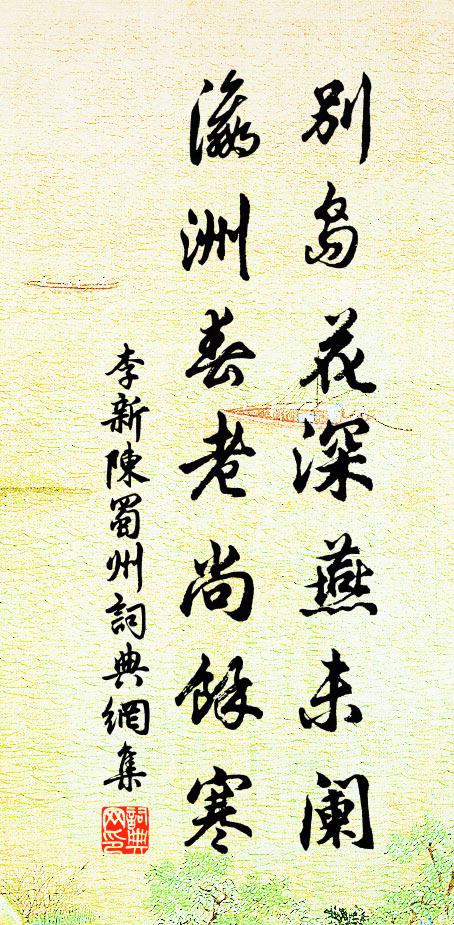 别岛花深燕未阑
瀛洲春老尚馀寒
李新陳蜀州詞典網集
詞典網印